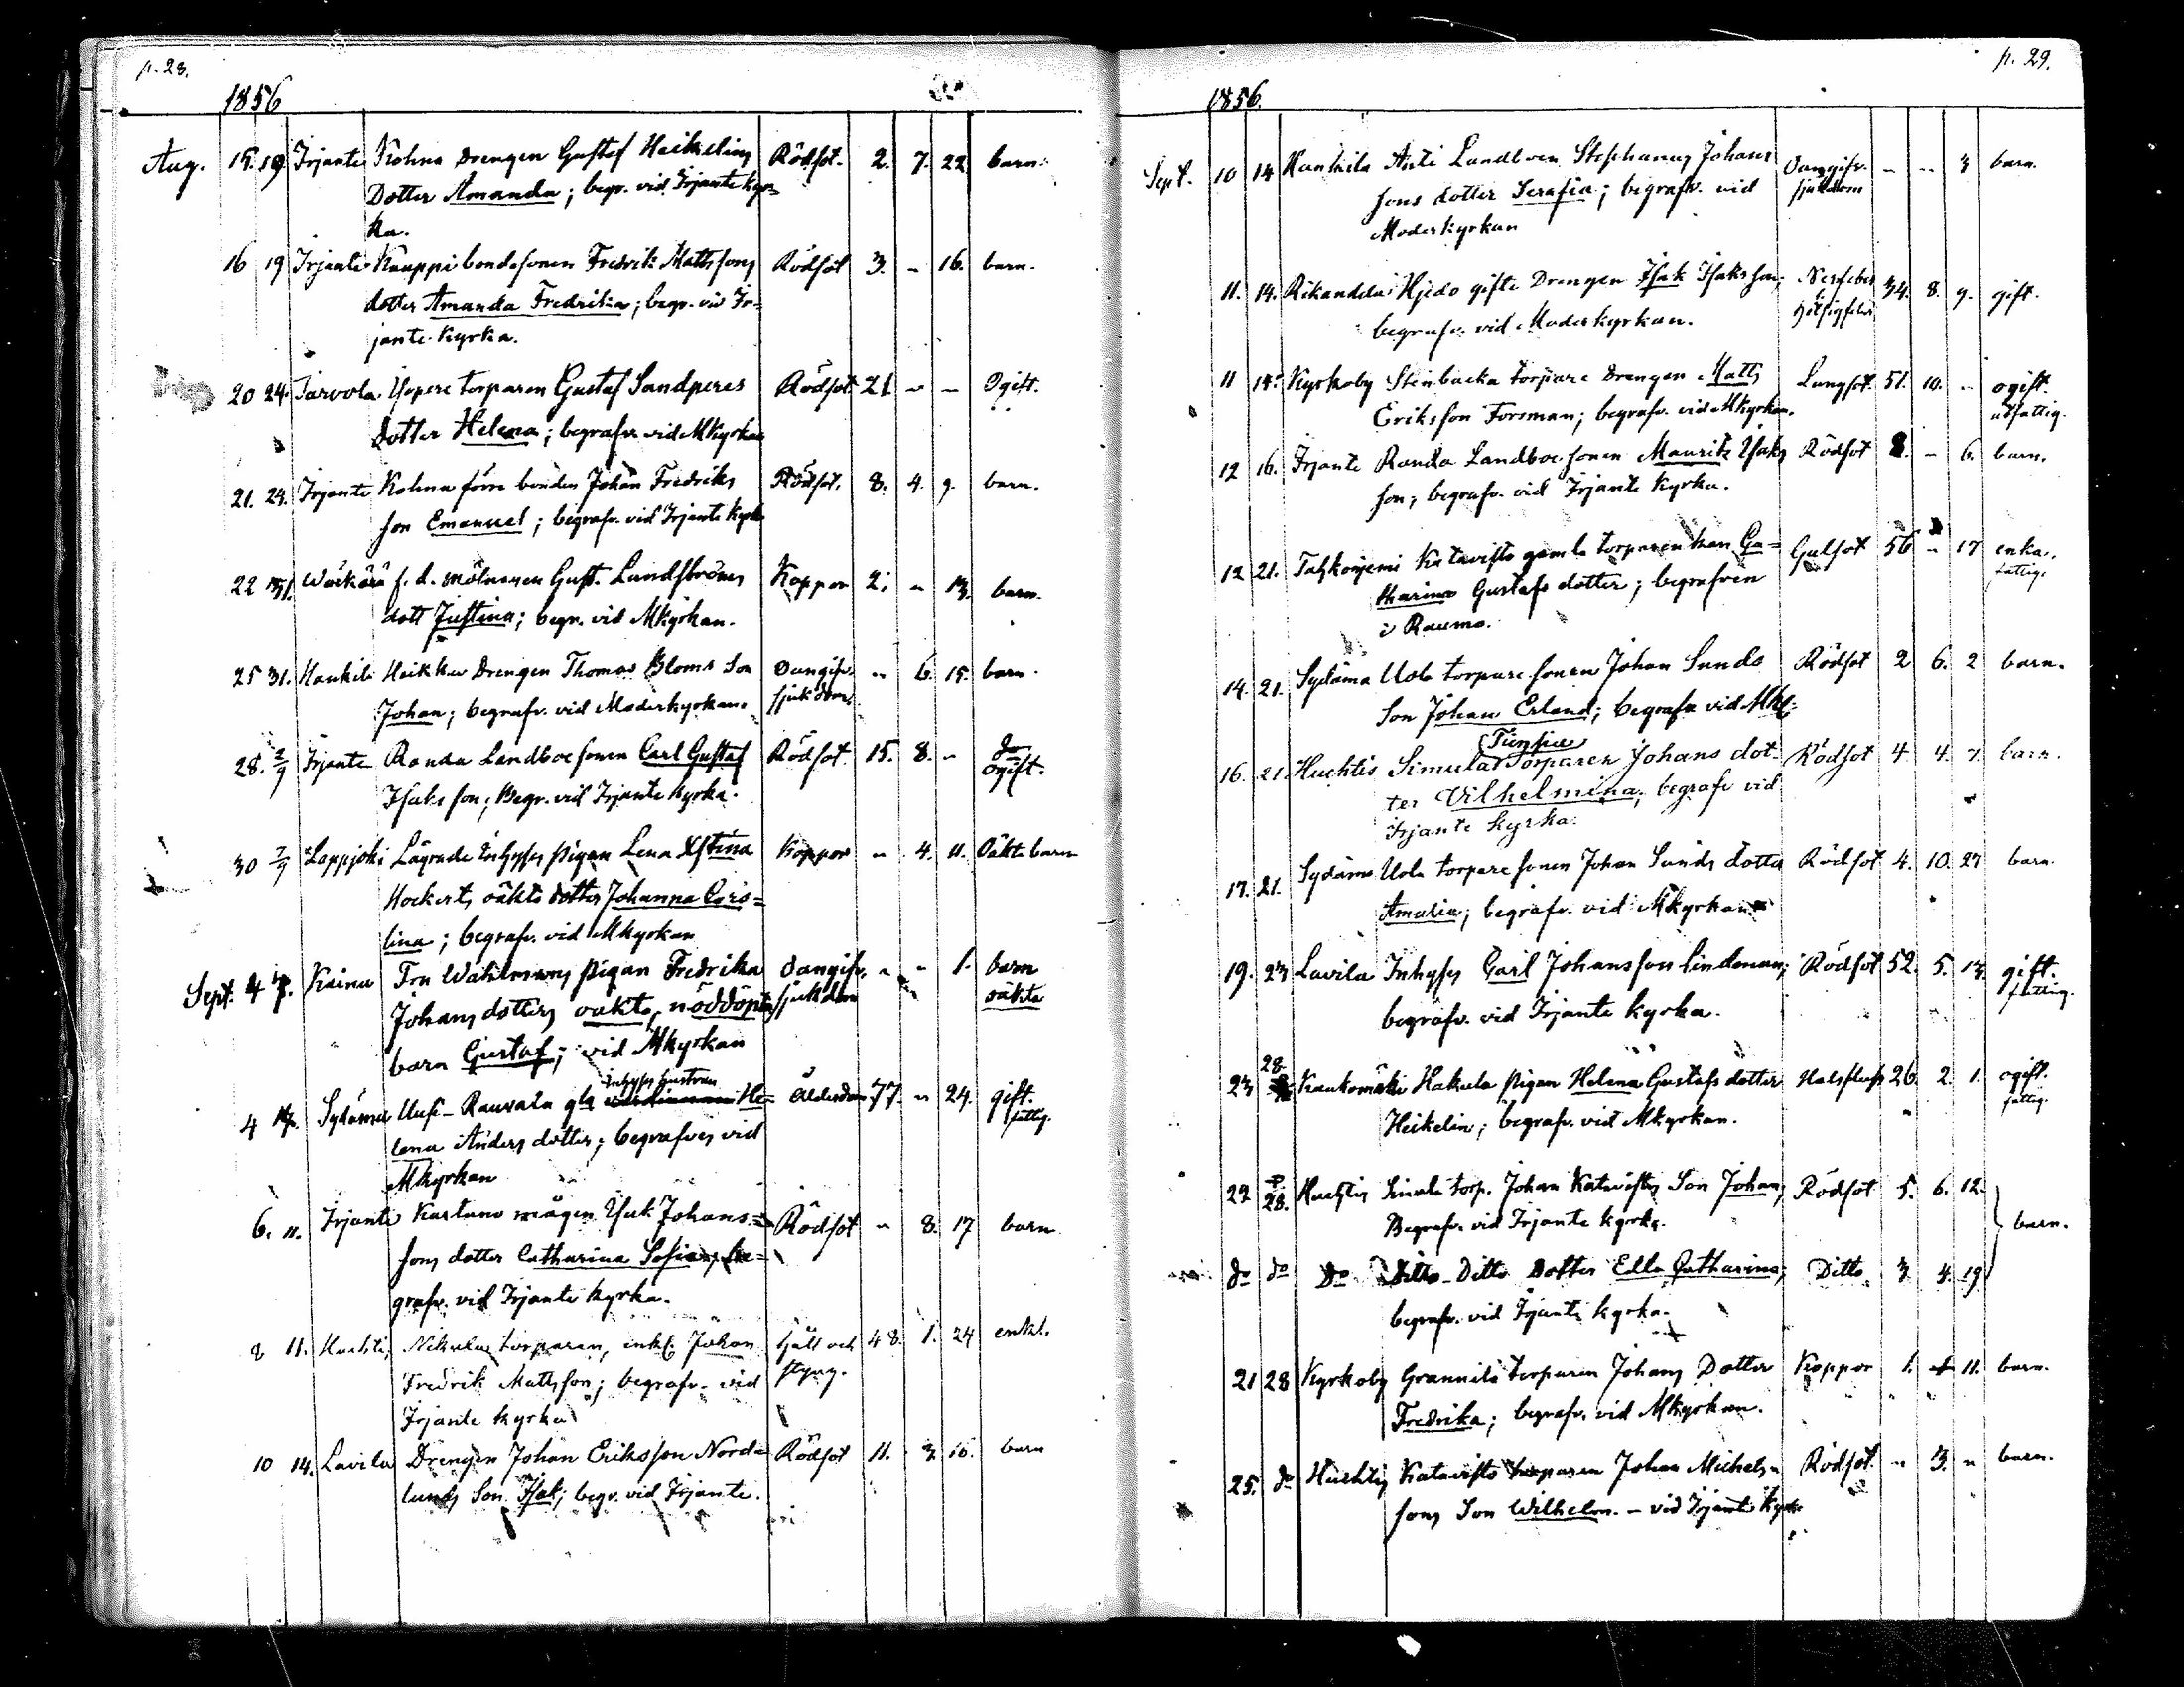 p. 28.
1856
Aug. 15. 19. Irjante Kohna Drengen Gustaf Heikelins Rödsot. 2. 7. 22 barn.
Dotter Amanda; begr. vid Irjante kyr-
ka.
16 19 Irjante Kauppi bondesonen Fredrik Mattssons Rödsot 3. - 16. barn.
dotter Amanda Fredrika; begr. vid Ir-
jante kyrka.
20 24. Tarvola torparen Gustaf Sandperes Rödsot 21. - - Ogift.
dotter Helena; begrafv. vid Mkyrkan
21. 24. Irjante Kohna förre bonden Johan Fredriks Rödsot. 8. 4. 9. barn.
son Emanuel; begrafv. vid Irjante kyrka
22 31. Wäkärä f. d. mölnaren Gust. Landströms Koppor 2. - 13. barn.
dott Justina; begr. vid Mkyrkan.
25 31. Hankila Heikka Drengen Thomas Bloms Son Oangifv. - 6. 15. barn.
Johan; begrafv. vid Moderkyrkan. sjukdom.
28. 2/9 Irjante Randa Landboesonen Carl Gustaf Rödsot 15. 8. - do ogift.
Isaksson; Begr. vid Irjante kyrka.
30 7/9 Lappjoki Lägrade Inhyses pigan Lena Xstina Koppor - 4. 11. Oäkta barn
Hockerts oäkta dotter Johanna Caro-
lina; begrafv. vid Mkyrkan
Sept. 4 7. Kaina Fru Wahlmans pigan Fredrika Oangifv. - - 1. barn
Johans dotters oäkta, nöddöpta sjukdom oäkta
barn Gustaf; vid Mkyrkan
inhyses hustrun
4 Sydänmaa Uusi-Rauvala gla He- Ålderdom 77. - 24. gift.
lena Anders dotter; begrafves vid fattig.
Mkyrkan
6. 11. Irjante Kartano mågen Isak Johans- Rödsot - 8. 17 barn
sons dotter Catharina Sofia; be-
grafv. vid Irjante kyrka.
8 11. Huchtis Nikula torparen, enkl. Johan Håll och 48. 1. 24 enkl.
Fredrik Mattsson; begrafv. vid styng.
Irjante kyrka
10 14. Lavila Drengen Johan Eriksson Nord- Rödsot 11. 3 16. barn
lunds Son Isak; begr. vid Irjante.
p. 29.
1856.
Sept. 10 14 Hankila Anti Landboen Stephanus Johans Oangifv. - - 3 barn.
sons dotter Serafia; begrafv. vid sjukdom
Moderkyrkan
11. 14. Rikantila Hjedo gifte Drengen Isak Isaksson; Nerffeber 34. 8. 9. gift.
begrafv. vid Moderkyrkan.
11 14. Kyrkoby Stenbacka torpare Drengen Matts Lungsot 51. 10. - ogift.
Eriksson Forsman; begrafv. vid Mkyrkan. utfattig.
12 16. Irjante Randa Landboesonen Mauritz Isaks Rödsot 8. - 6. barn.
son; begrafv. vid Irjante kyrka.
12 21. Katavisto gamla torparenkan Ca- Gulsot 56 - 17 enka.
tharina Gustafs dotter; begrafven fattig.
i Raumo.
14. 21. Sydäma Uola torpare sonen Johan Sunds Rödsot 2 6. 2 barn.
Son Johan Erland; begrafv. vid Mk.
16. 21. Huchtis Simula Torparen Johans dot- Rödsot 4 4. 7. barn.
ter Vilhelmina; begrafv vid
Irjante kyrka.
17. 21. Sydäma Uola torpare sonen Johan Sunds dotter Rödsot 4. 10. 27 barn.
Amalia; begrafv. vid Mkyrkan
19. 23 Lavila Inhyses Carl Johansson Lindman; Rödsot 52. 5. 13. gift.
begrafv. vid Irjante kyrka. fattig.
28.
23 Kaukomäki Hakula pigan Helena Gustafs dotter Halsfluss 26. 2. 1. ogift.
Heikelin; begrafv. vid Mkyrkan. fattig.
22 28. Huchtis Simula torp. Johan Katavistos Son Johan; Rödsot 5. 6. 12.
Begrafv. vid Irjante kyrka. barn.
do do Do Ditto Ditto Dotter Ella Catharina; Ditto 3 4. 19
begrafv. vid Irjante kyrka.
21 28 Kyrkoby Grannila torparen Johans Dotter Koppor 1. 11. barn.
Fredrika; begrafv. vid Mkyrkan.
25. do Huchtis Katavisto torparen Johan Michels- Rödsot - 3. - barn.
sons Son Wilhelm. - vid Irjante kyrka